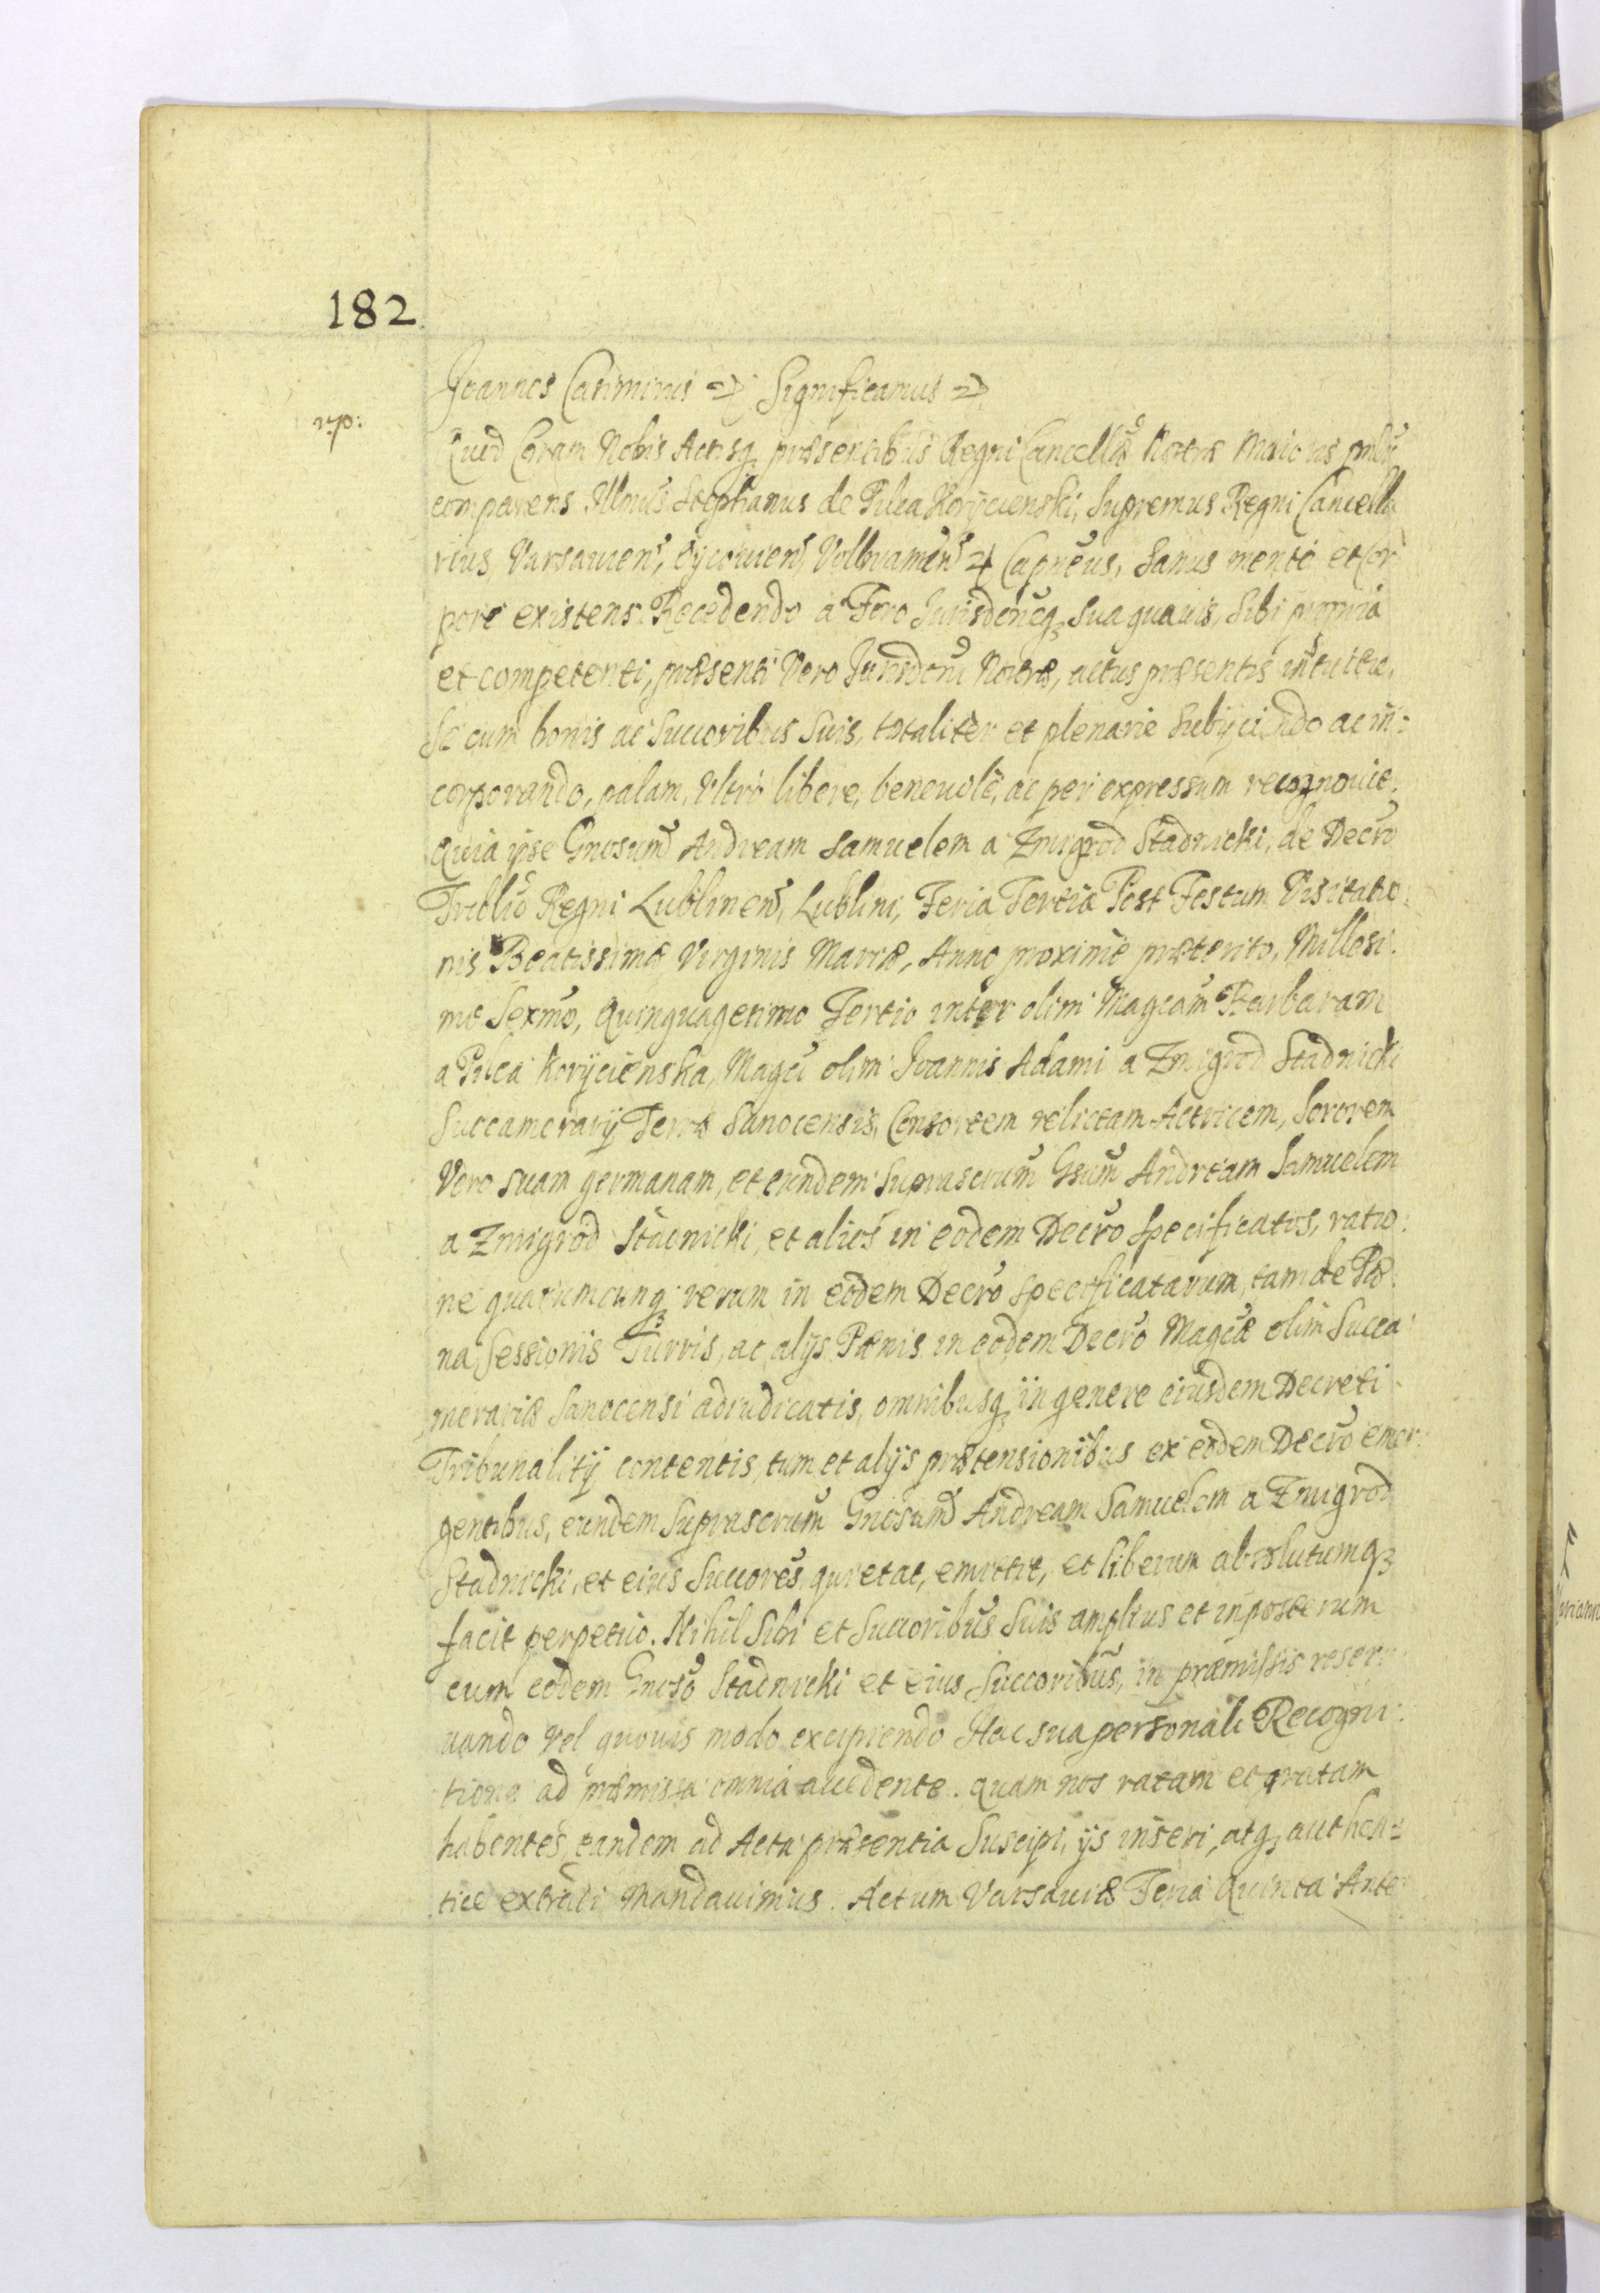 182
Joannes Casimirus Significamus
rsp:
Quod Coram Nobis Actisq præsentibus Regni Cancellæ Nostræ Maioris
comparens Illmus Stephanus de Pilca Korycienski, Supremus Regni Cancella
rius, Varsauien, Oycouien, Volbramen Capneus, Sanus mente et Cor
pore existens. Recedendo a Foro Jurisdcneq sua quauis, Sibi propria
et competenti, præsenti Vero Jurisdcni Nostræ, actus præsentis intuitu,
Se cum bonis ac Succoribus Suis, totaliter et plenarie Subijciendo ac in:
corporando, palam, Vltro libere, beneuole, ac per expressum recognouit.
Quia ipse Gnosum Andream Samuelem a Zmigrod Stadnicki, de Decro
Trıblio Regni Lublinen, Lublini, Feria Tertia Post Festum Visitatio:
nis Beatissimæ Virginis Mariæ, Anno proxime præterito, Millesi:
mo Sexmo, Quinquagesimo Tertio inter olim Magcam Barbaram
a Pilca Korycienska, Magci olim Joannis Adami a Zmigrod Stadnicki
Succamerarij Terræ Sanocensis, Consortem relictam Actricem, Sororem
Vero suam germanam, et eundem suprascrum Gsum Andream Samuelem
a Zmigrod Stadnicki, et alios in eodem Decro specificatos, ratio:
ne quarumcunq rerum in eodem Decro specificatarum, tam de Pæ:
na Sessionis Turris, ac alys Pænis in eodem Decro Magcæ olim Succa:
merariæ Sanocensi adiudicatis, omnibusq in genere eiusdem Decreti
Tribunalitij contentis, tum et alijs prætensionibus ex eodem Decro emer:
gentibus, eundem Suprascrum Gnosum Andream Samuelem a Zmigrod
Stadnicki, et eius Succores, quietat, emittit, et liberum absolutumq3
facit perpetuo. Nihil Sibi et Succoribus Suis amplius et inposterum
cum eodem Gnoso Stadnicki et eius Succoribus, in præmissis reser:
uando vel quouis modo excipiendo Hac sua personali Recogni:
tione ad præmissa omnia accedente. quam nos ratam et gratam
habentes, eandem ad Acta præsentia Suscipi, ijs inseri, atq, authen=
tice extradi Mandauimus. Actum Varsauiæ Feria Quinta Ante